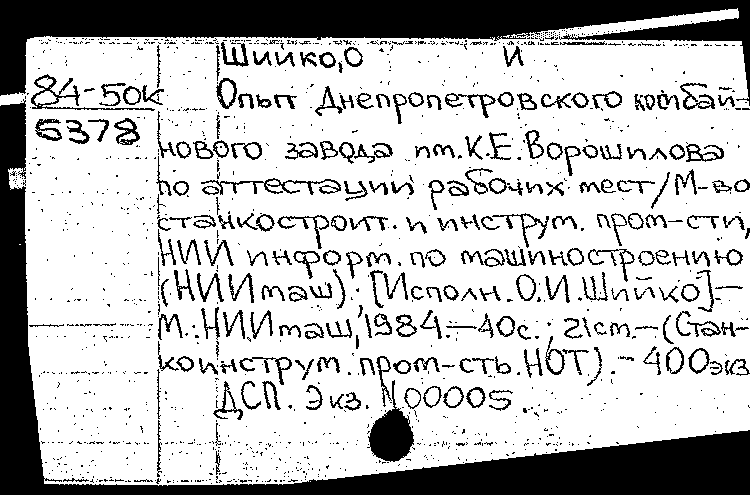 Шийко, О И
84-50к
6378
Опыт Днепропетровского комбай-
нового завода им. К.Е. Ворошилова
по аттестации рабочих мест/М-во
станкостроит. и инструм. пром-сти,
НИИ информ. по машиностроению
(НИИмаш); [Исполн. О.И. Шийко].—
М.: НИИмаш, 1984.—40с.; 21см.—(Стан-
коинструм. пром-сть. НОТ).- 400экз
ДСП. Экз. N00005.